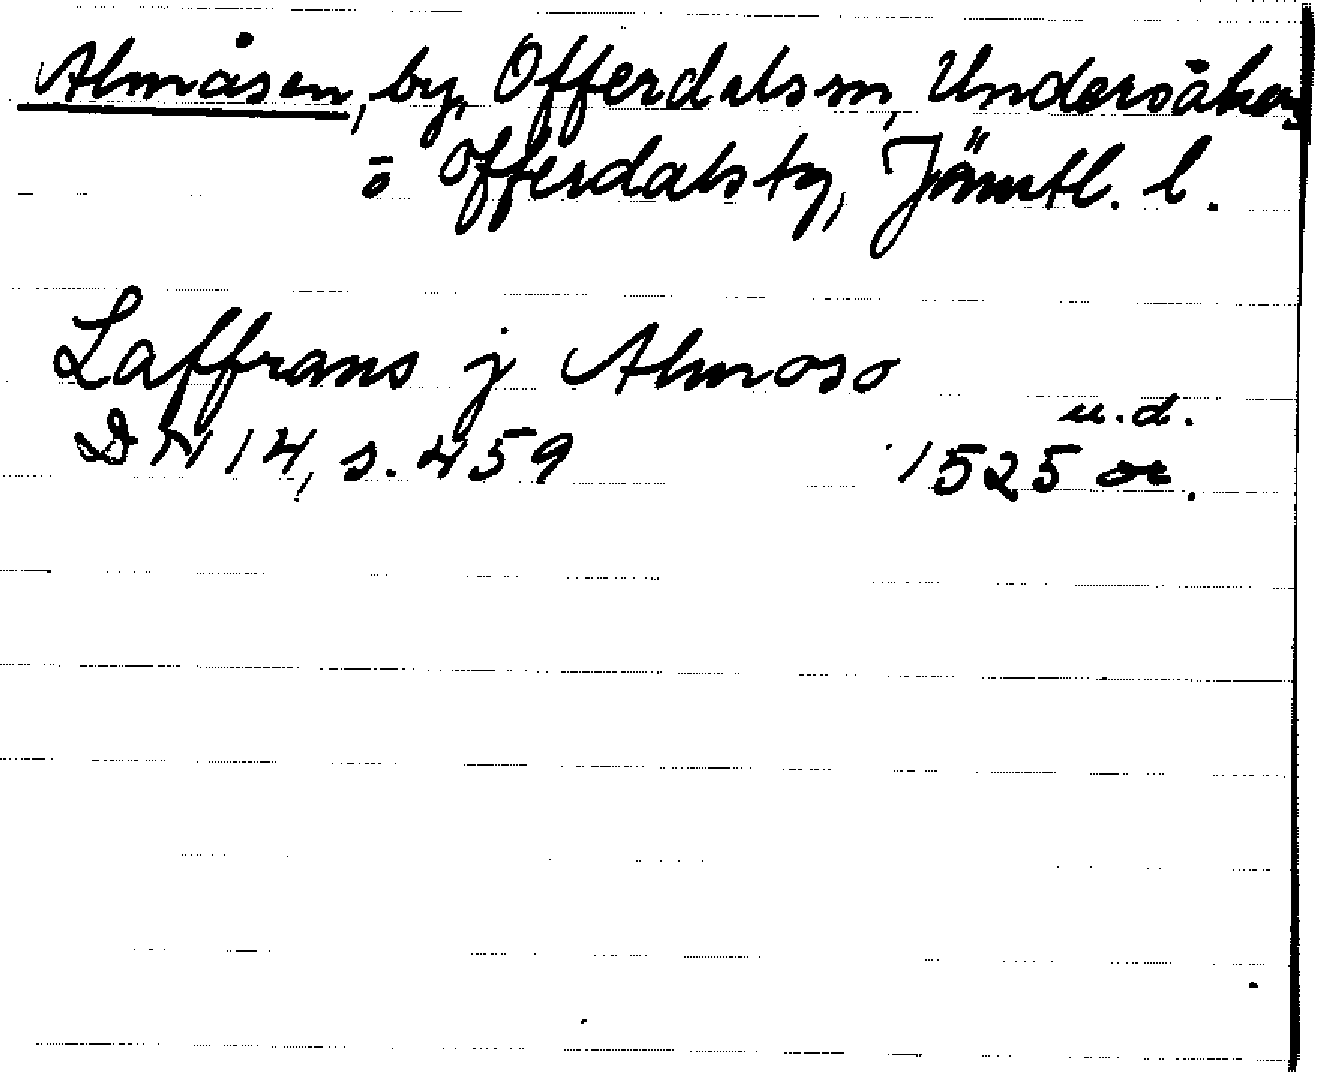 Almåsen, by, Offerdals sn, Undersåkers
o Offerdals tg, Jämtl. l.
Laffrans j Almoso
u.d.
DN 14, s. 459 1525 or.